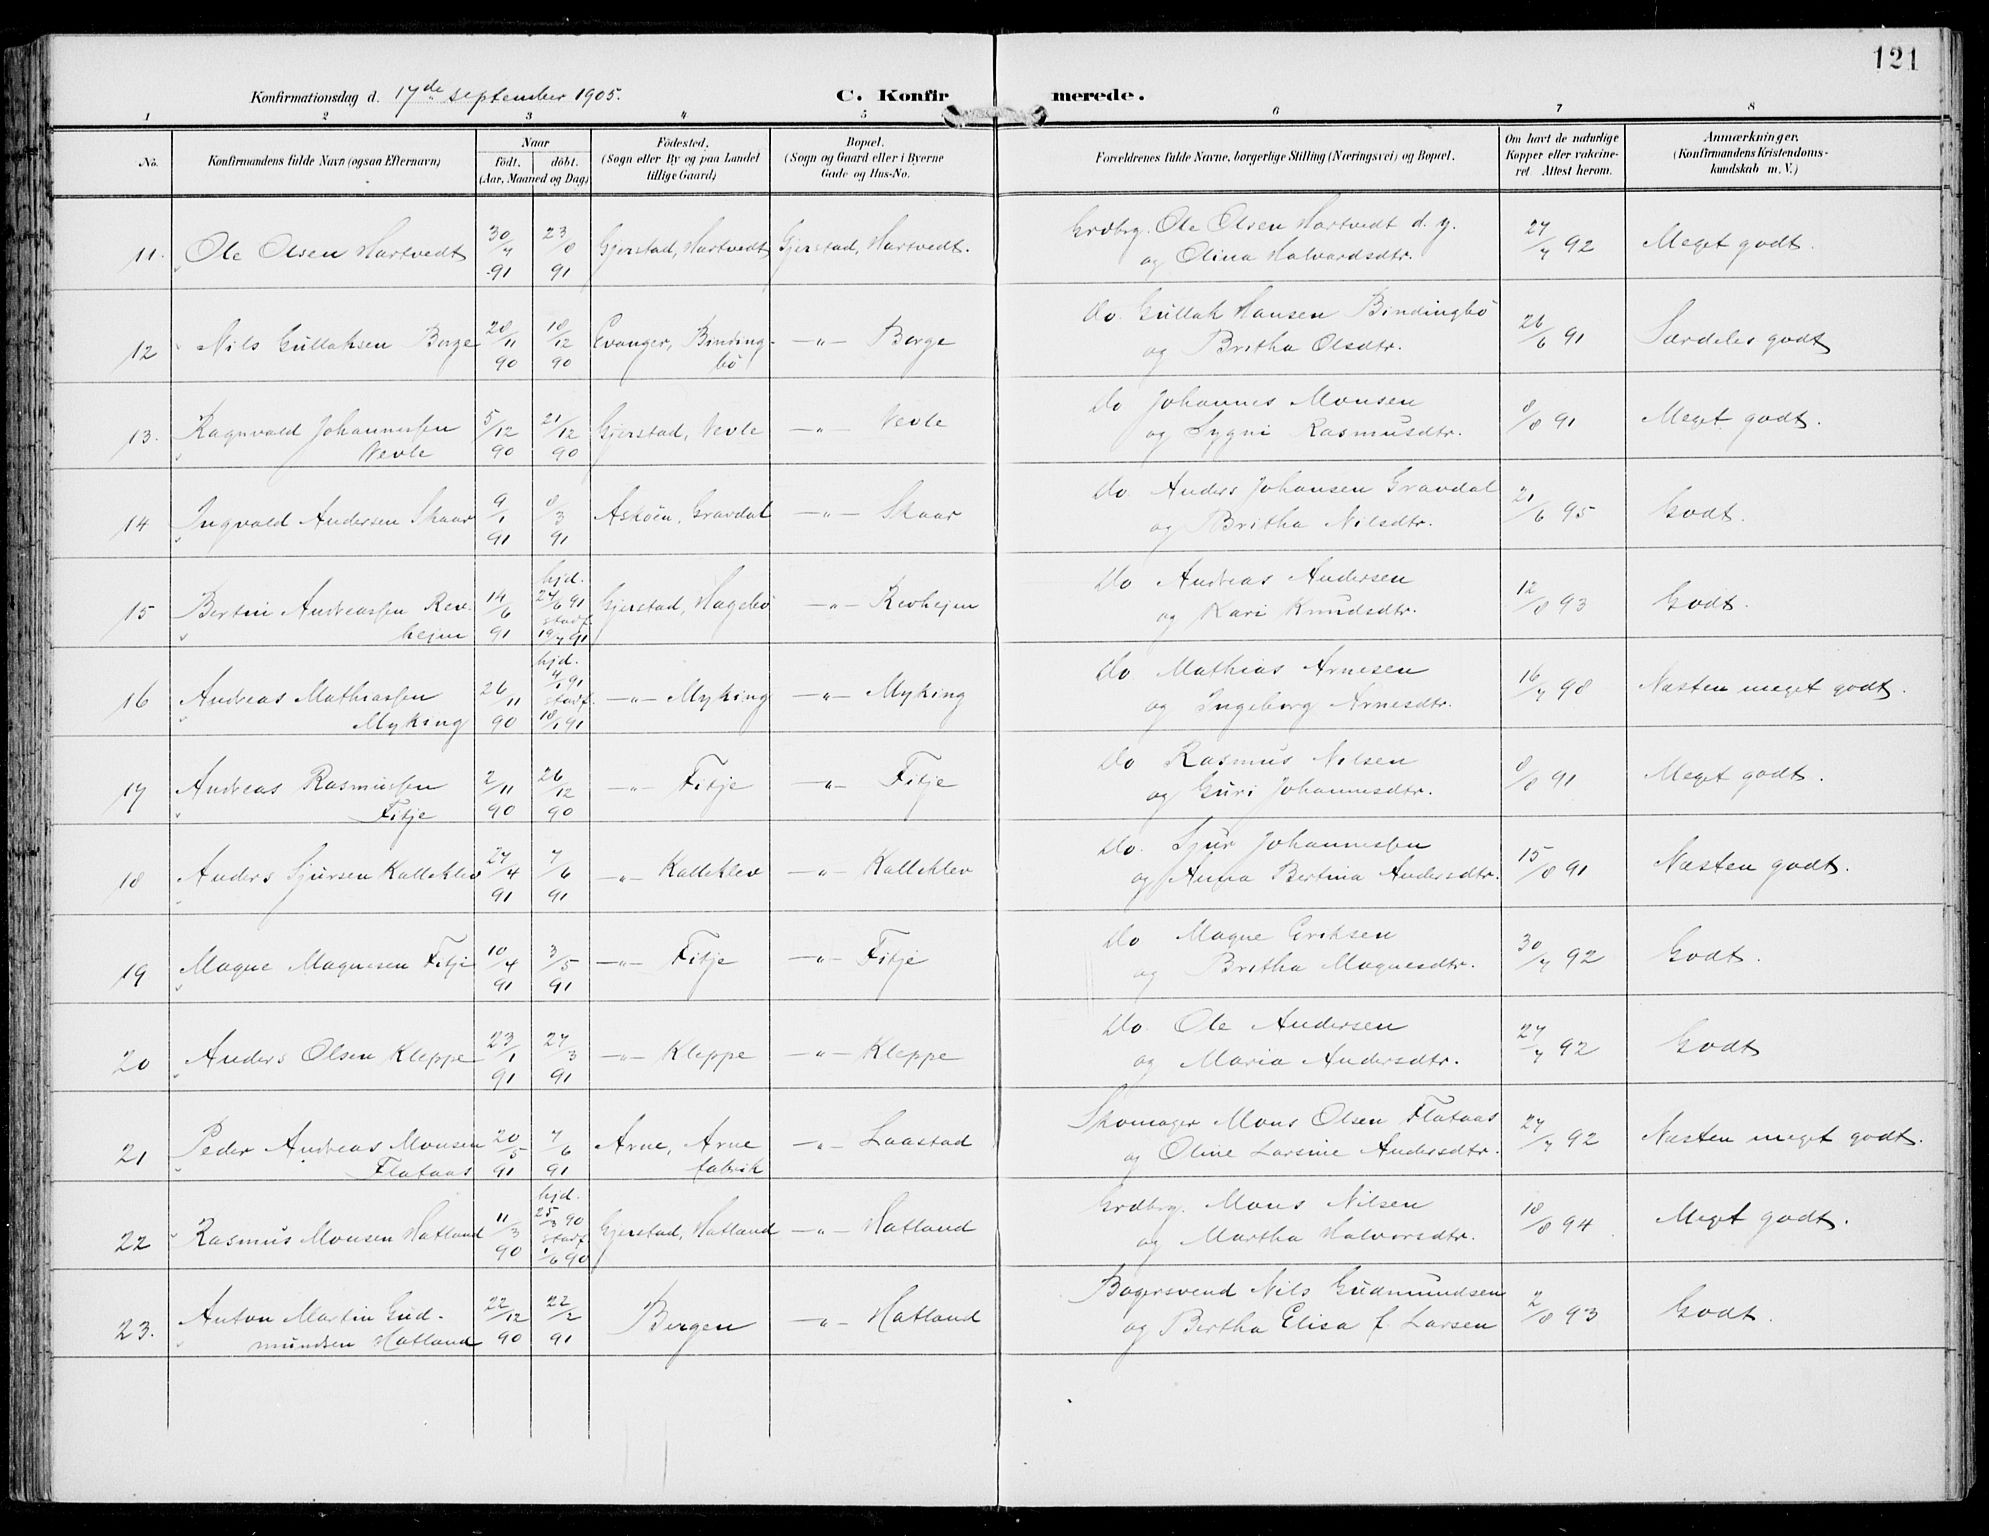 121
Konfirmationsdag d. 17de september 1905.
C. Konfirmerede.
1 2 3 4 5 6 7 8
No.
Konfirmandens fulde Navn (ogsaa Efternavn)
Naar
født, døbt.
(Aar, Maaned og Dag)
Fødested.
(Sogn eller By og paa Landet
tillige Gaard)
Bopæl.
(Sogn og Gaard eller i Byerne
Gade og Hus-No.
Forældrenes fulde Navne, borgerlige Stilling (Næringsvei) og Bopæl.
Om havt de naturlige
Kopper eller vakcine-
ret Attest herom.
Anmærkninger.
(Konfirmandens Kristendoms-
kundskab m. V.)
11. Ole Olsen Hartvedt 30/7 91 23/8 91 Gjerstad, Hartvedt Gjerstad, Hartvedt. Grdbrg. Ole Olsen Hartvedt d. y. 27/7 92 Meget godt.
og Olina Halvardsdtr.
12 Nils Gullaksen Borge 28/11 90 18/12 90 Evanger, Binding- -"- Borge Do. Gullak Hansen Bindingbö 26/6 91 Særdeles godt
bö og Britha Olsdtr.
13. Ragnvald Johannessen 5/12 90 21/12 90 Gjerstad, Vevle -"- Vevle Do Johannes Monsen 8/8 91 Meget godt.
Vevle og Sygni Rasmusdtr.
14 Ingvald Andersen Skaar 9/1 91 8/3 91 Asköen, Gravdal -"- Skaar Do. Anders Johansen Gravdal 21/6 95 Godt.
og Britha Nilsdtr.
15 Bertin Andreassen Rev- 14/6 91 hjd. 24/6 91 stadf. 19/7 91 Gjerstad, Hagebö -"- Revhejm Do Andreas Andersen 12/8 93 Godt.
hejm og Kari Knudsdtr.
16 Andreas Mathiassen 26/11 90 hjd. 4/1 91 stadf. 18/1 91 -"- Myking -"- Myking Do Mathias Arnesen 16/7 98 Næsten meget godt.
Myking og Ingeborg Arnesdtr.
17 Andreas Rasmussen 2/11 90 26/12 90 -"- Fitje -"- Fitje Do Rasmus Nilsen 8/8 91 Meget godt.
Fitje og Guri Johannesdtr.
18 Anders Sjursen Kalleklev 27/4 91 7/6 91 -"- Kalleklev -"- Kalleklev Do. Sjur Johannessen 15/8 91 Næsten godt.
og Anna Bertina Andersdtr.
19 Magne Magnesen Fitje 10/4 91 3/5 91 -"- Fitje -"- Fitje Do Magne Eriksen 30/7 92 Godt.
og Britha Magnesdtr.
20 Anders Olsen Kleppe 23/1 91 27/3 91 -"- Kleppe -"- Kleppe Do. Ole Andersen 27/7 92 Godt
og Maria Andersdtr.
21 Peder Andreas Monsen 20/5 91 7/6 91 Arne, Arne -"- Laastad Skomager Mons Olsen Flataas 27/7 92 Næsten meget godt.
Flataas fabrik og Oline Larsine Andersdtr.
22 Rasmus Monsen Hatland 11/3 90 hjd. 25/3 90 stadf. 1/6 90 Gjerstad, Hatland -"- Hatland Grdbrg. Mons Nilsen 18/8 94 Meget godt.
og Martha Halvorsdtr.
23. Anton Martin Gud- 22/12 90 22/2 91 Bergen -"- Hatland Bagersvend Nils Gudmundsen 2/8 93 Godt.
mundsen Hatland og Bertha Elisa f. Larsen